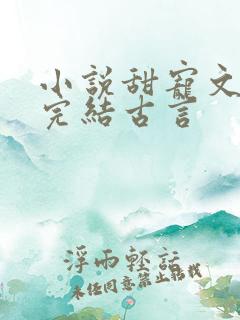 小説甜寵文
完結古言
浮雨輕話
未经同意禁止转我